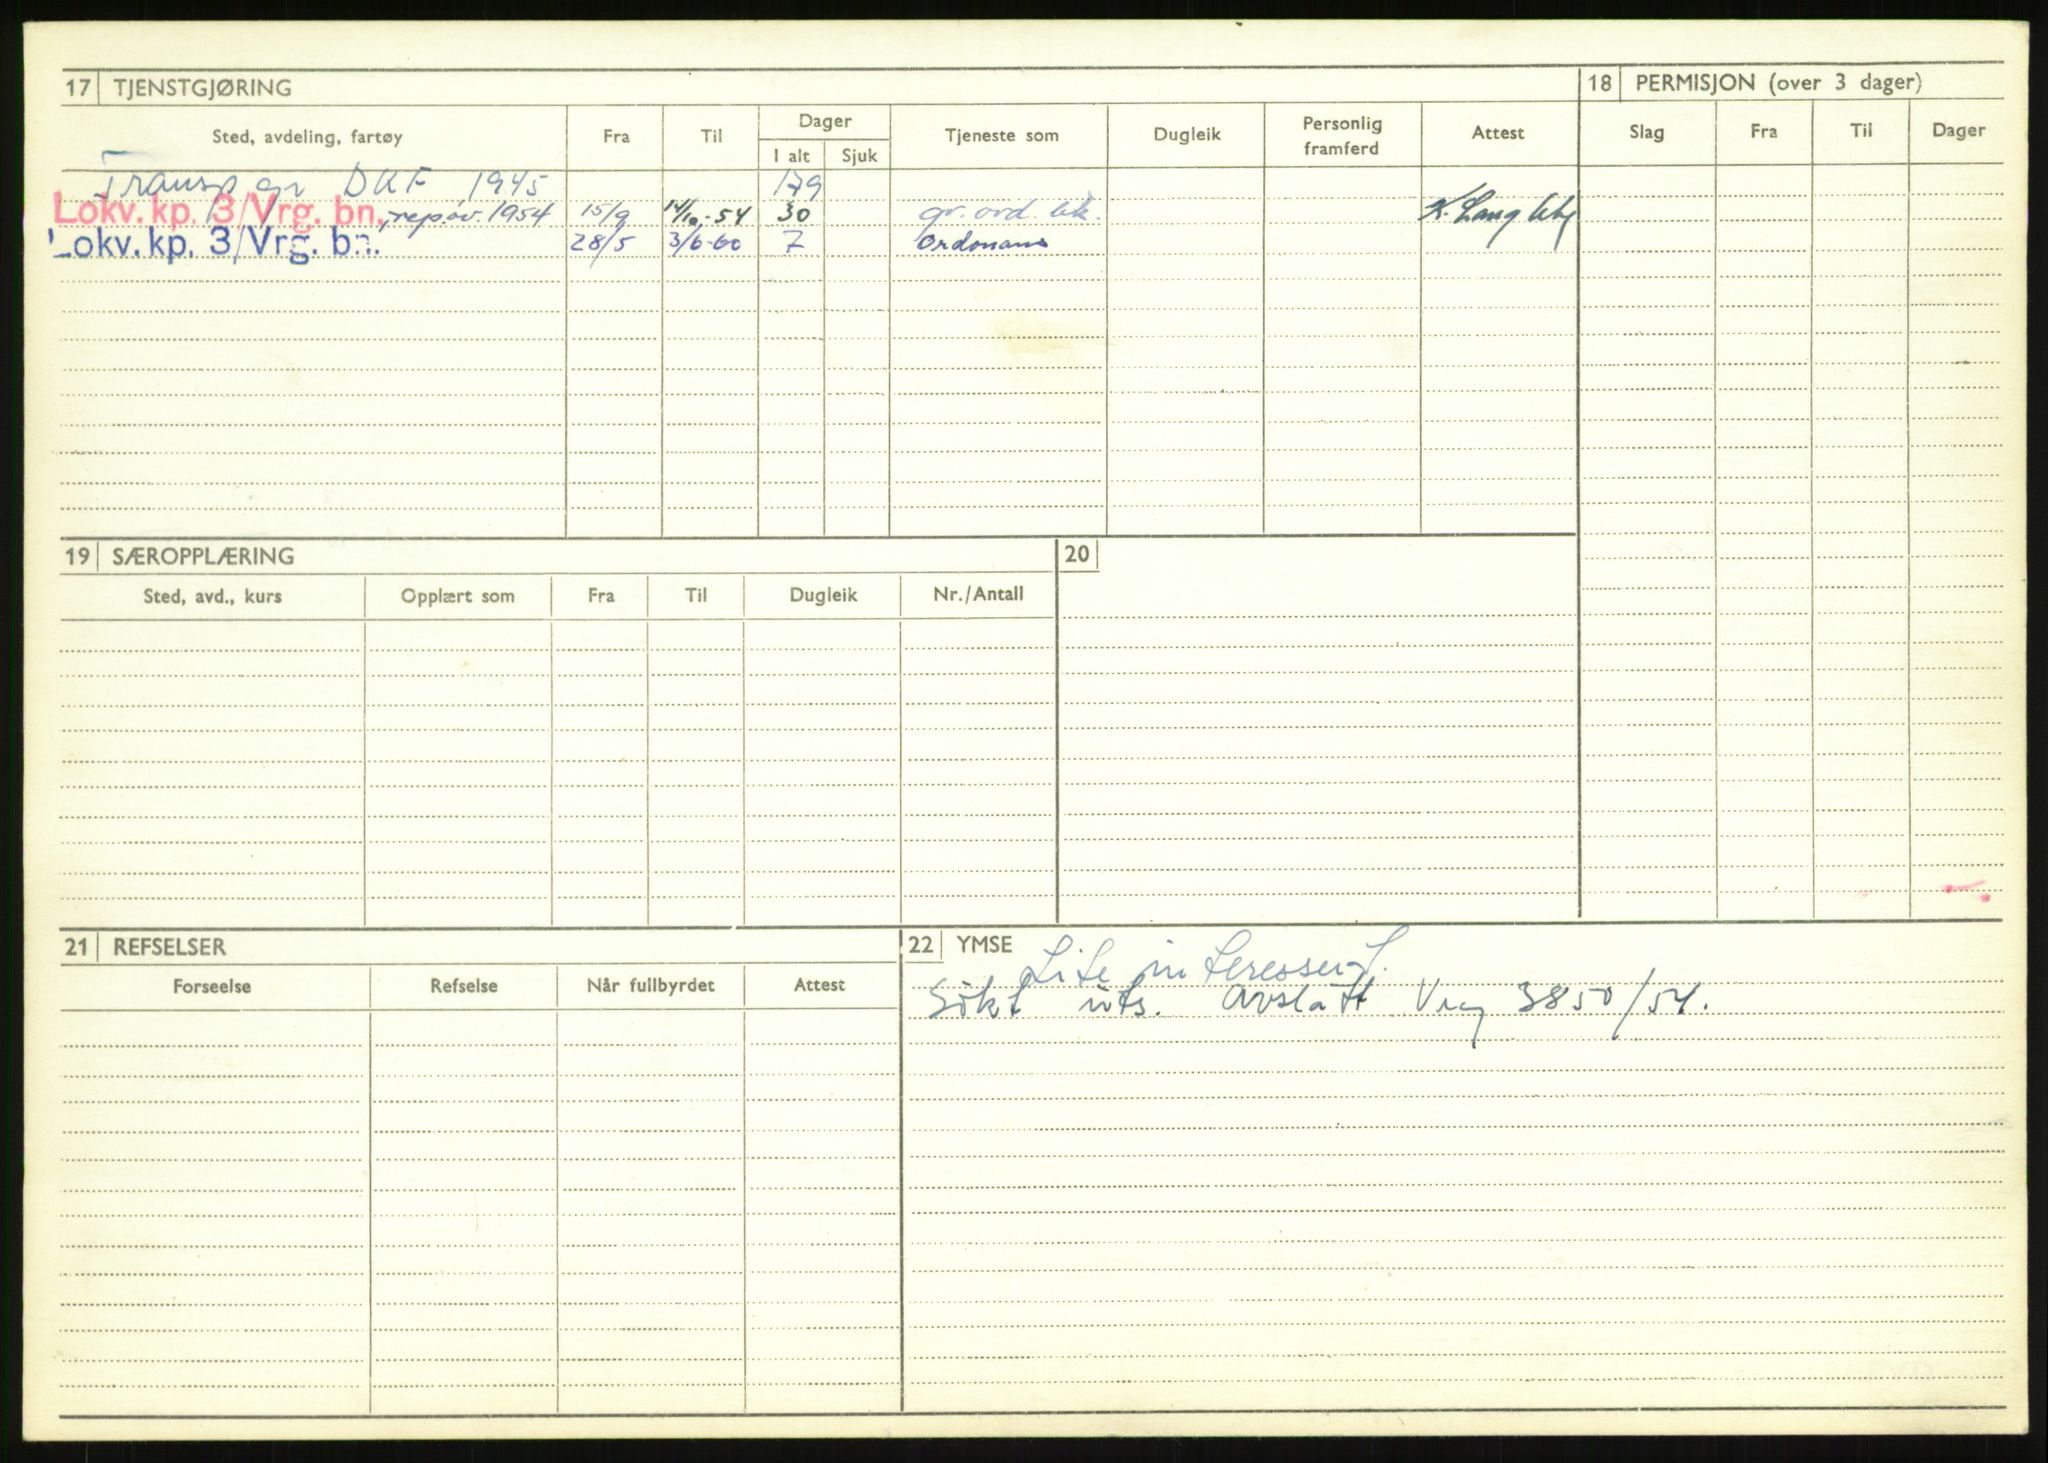 17 TJENSTGJØRING
18 PERMISJON (over 3 dager)
Sted, avdeling, fartøy Fra Til Dager Tjeneste som Dugleik Personlig framferd Attest Slag Fra Til Dager
I alt Sjuk
Transp gr DKF 1945 179
Lokv. kp. 3/Vrg. bn., rep.øv. 1954 15/9 14/10-54 30 gr. ord. bk. K. Langleby
Lokv. kp. 3/Vrg. bn. 28/5 3/6-60 7 Ordonans
19 SÆROPPLÆRING 20
Sted, avd., kurs Opplært som Fra Til Dugleik Nr./Antall
21 REFSELSER
22 YMSE
Forseelse Refselse Når fullbyrdet Attest
Lite interessert.
Søkt uts. Avslått Vrg 3850/54.